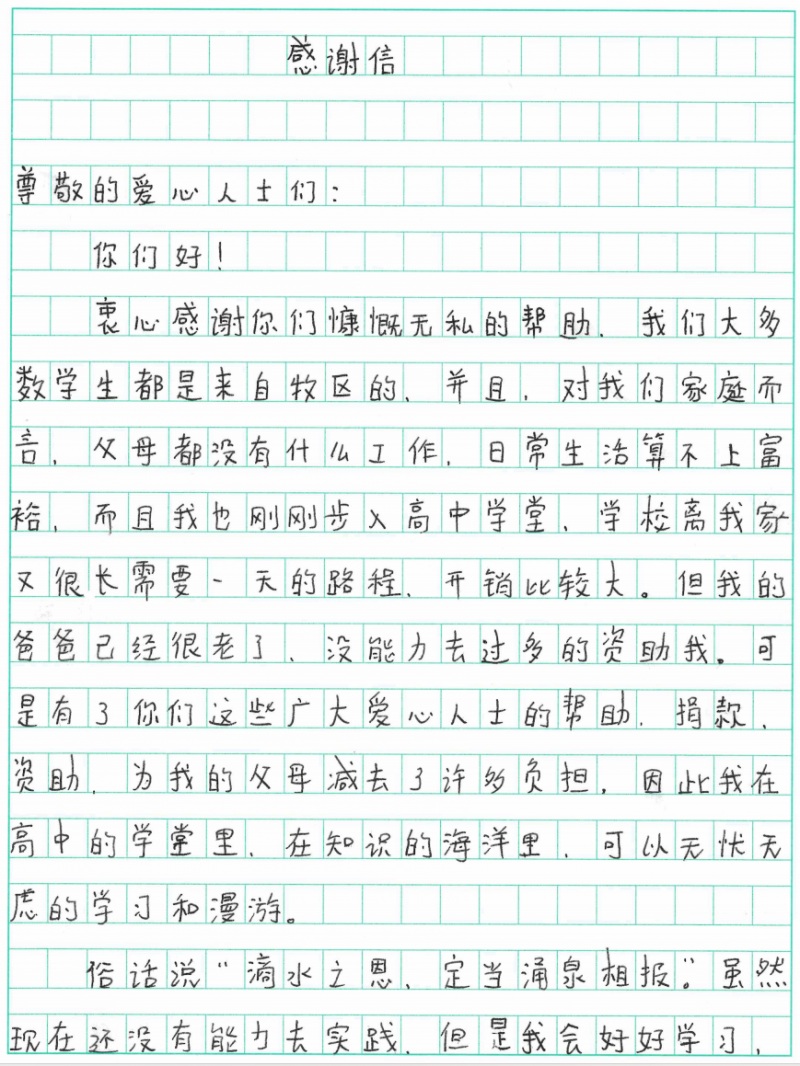 感谢信
尊敬的爱心人士们：
你们好！
衷心感谢你们慷慨无私的帮助，我们大多
数学生都是来自牧区的，并且，对我们家庭而
言，父母都没有什么工作，日常生活算不上富
裕，而且我也刚刚步入高中学堂，学校离我家
又很长需要一天的路程，开销比较大。但我的
爸爸已经很老了，没能力去过多的资助我。可
是有了你们这些广大爱心人士的帮助，捐款，
资助，为我的父母减去了许多负担，因此我在
高中的学堂里，在知识的海洋里，可以无忧无
虑的学习和漫游。
俗话说“滴水之恩，定当涌泉相报”。虽然
现在还没有能力去实践，但是我会好好学习，